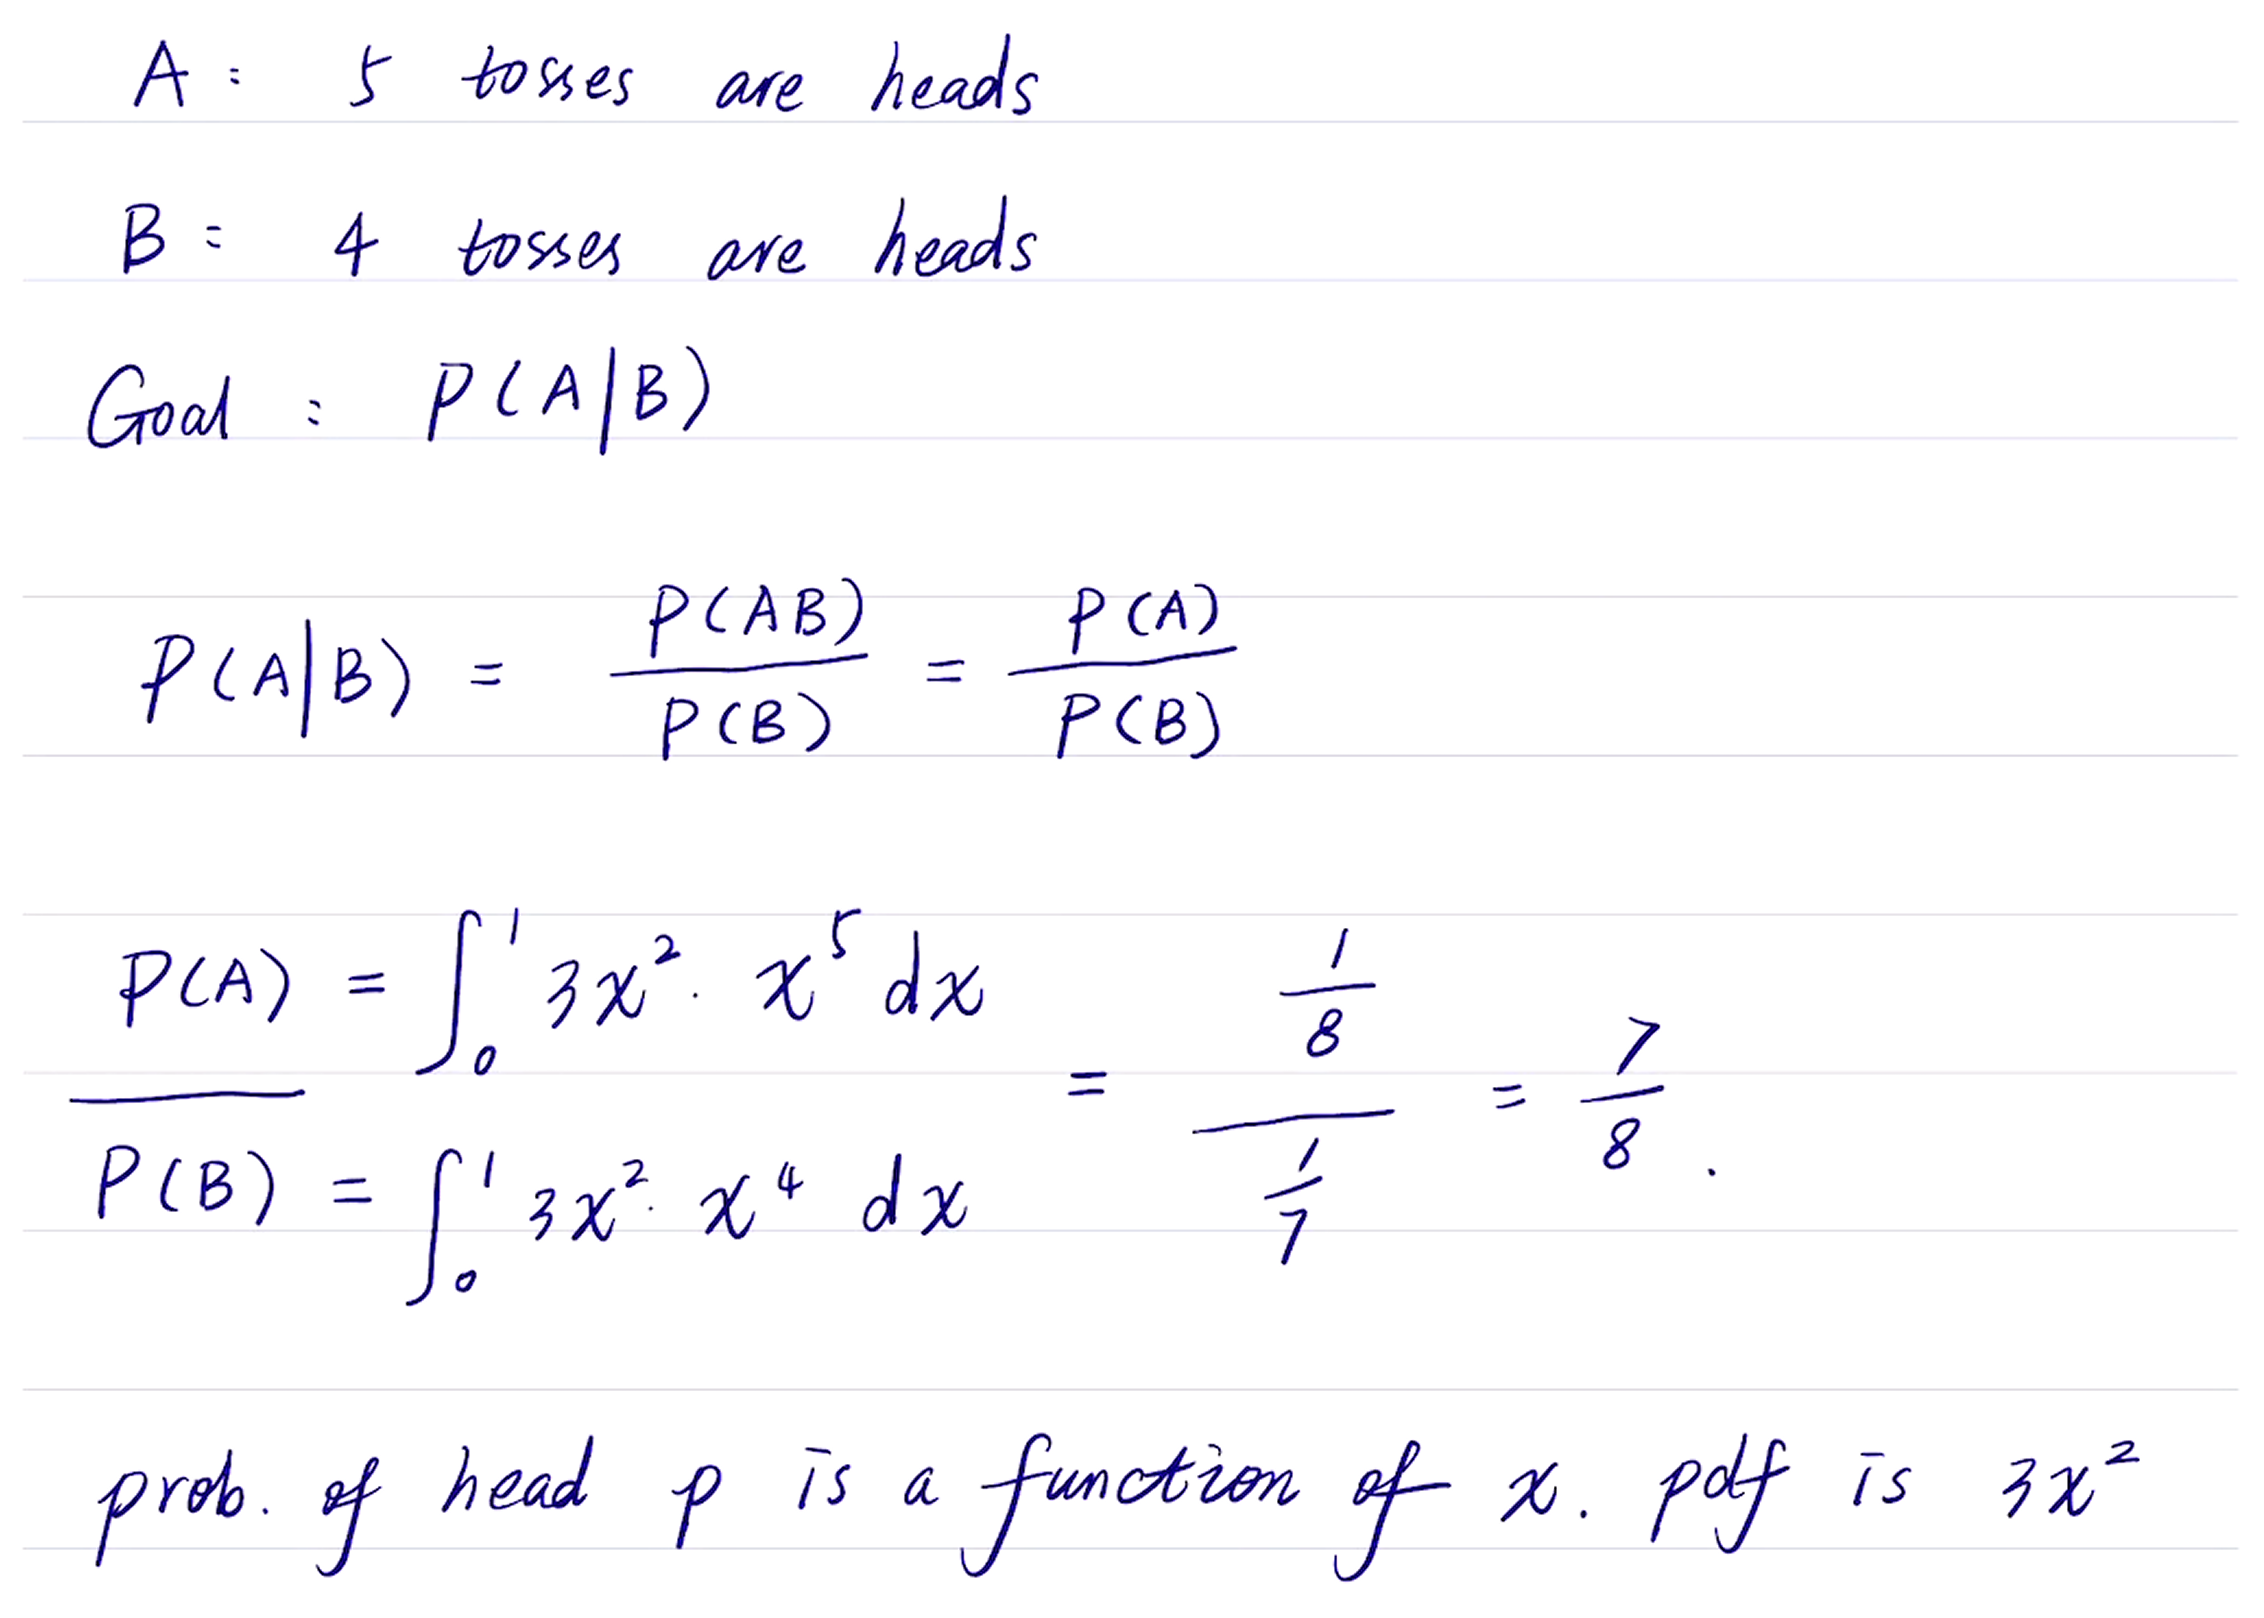 A: 5 tosses are heads
B: 4 tosses are heads
Goal: P(A|B)
P(A|B) = P(AB)/P(B) = P(A)/P(B)
P(A) = ∫₀¹ 3x² · x⁵ dx
= 1/8 / 1/7 = 7/8.
P(B) = ∫₀¹ 3x² · x⁴ dx
prob. of head p is a function of x. pdf is 3x²